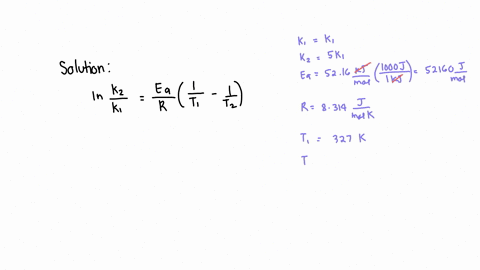 Solution:
ln K₂/K₁ = Ea/R (1/T₁ - 1/T₂)
K₁ = K₁
K₂ = 5K₁
Ea = 52.16 kJ/mol (1000 J/1 kJ) = 52160 J/mol
R = 8.314 J/mol K
T₁ = 327 K
T